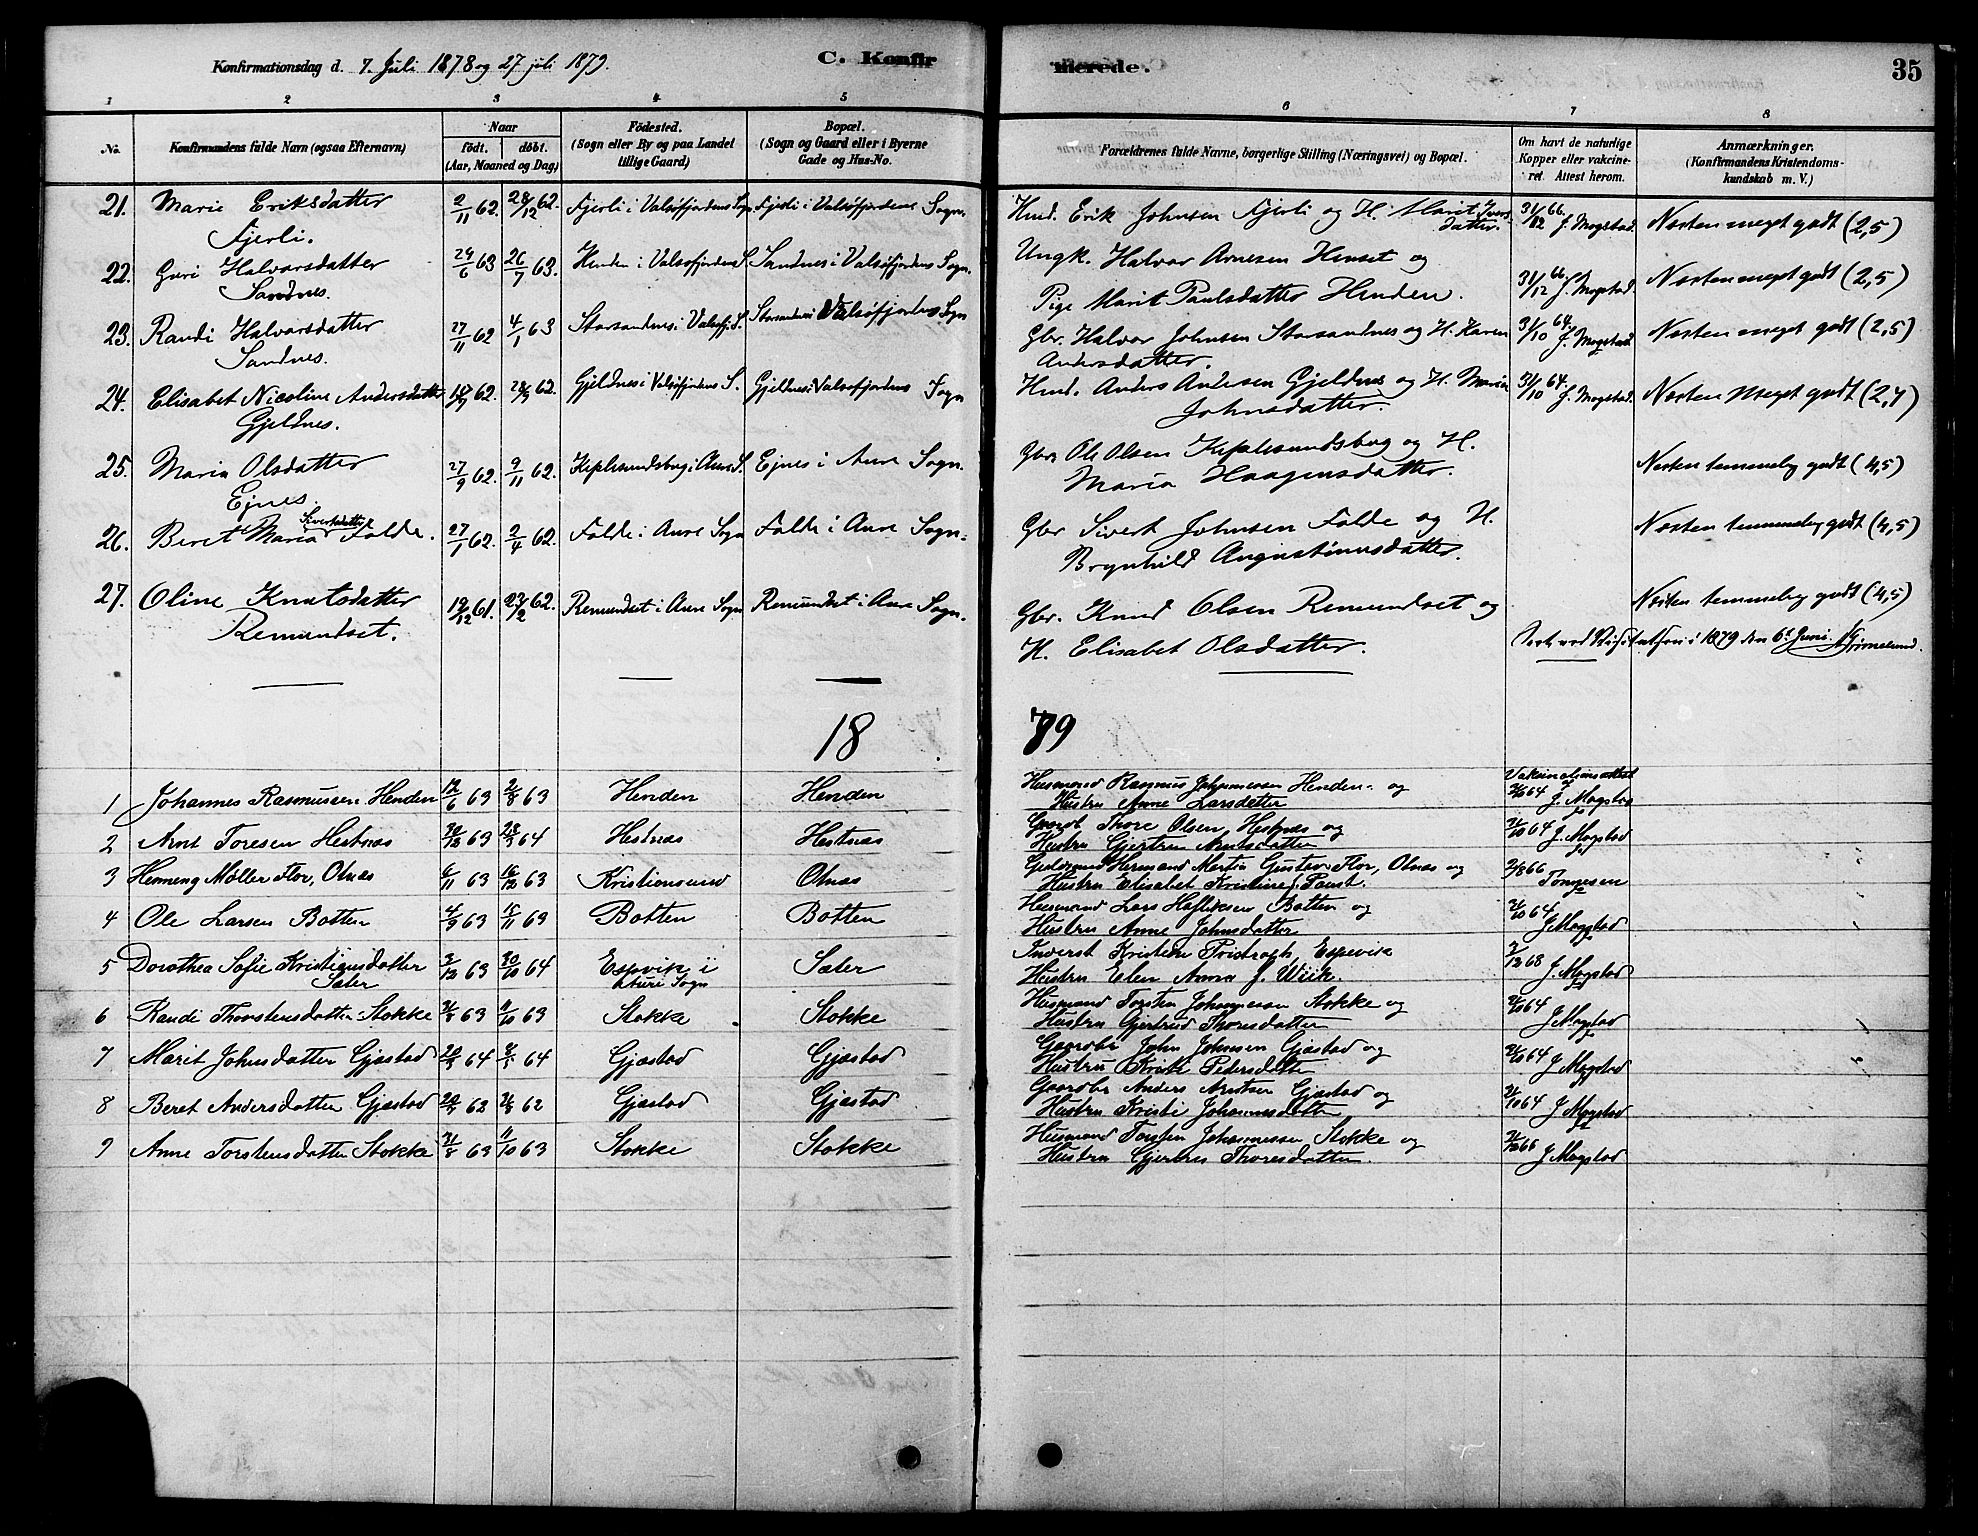 Konfirmationsdag d. 7. Juli 1878 og 27 juli 1879.
C. Konfirmerede.
35
1 2 3 4 5 6 7 8
No.
Konfirmandens fulde Navn (ogsaa Efternavn)
Naar
födt. döbt.
(Aar, Maaned og Dag)
Födested.
(Sogn eller By og paa Landet
tillige Gaard)
Bopæl.
(Sogn og Gaard eller i Byerne
Gade og Hus-No.
Forældrenes fulde Navne, borgerlige Stilling (Næringsvei) og Bopæl.
Om havt de naturlige
Kopper eller vakcine-
ret. Attest herom.
Anmærkninger.
(Konfirmandens Kristendoms-
kundskab m. V.)
21. Marie Eriksdatter Fjerli. 2/11 62. 28/12 62. Fjerli i Valsøfjordens Sogn Fjerli i Valsøfjordens Sogn. Hmd. Erik Johnsen Fjerli og H. Marit Iversdatter. 31/12 66. J. Mogstad. Næsten meget godt (2,5)
22. Guri Halvorsdatter Sandnes. 24/6 63 26/7 63. Henden i Valsøfjordens S. Sandnes i Valsøfjordens Sogn. Ungk. Halvor Arnesen Henset og
Pige Marit Paulsdatter Henden. 31/12 66. J. Mogstad. Næsten meget godt (2,5)
23. Randi Halvorsdatter Sandnes. 27/11 62 4/1 63 Storsandnes i Valsøfj. S. Storsandnes i Valsøfjordens Sogn Gbr. Halvor Johnsen Storsandnes og H. Karen
Andersdatter. 31/10 64. J. Mogstad. Næsten meget godt (2,5)
24. Elisabet Nicoline Andersdatter Gjeldnes. 62. 28/9 62. Gjeldnes i Valsøfjordens S. Gjeldnes i Valsøfjordens Sogn Hmd. Anders Andersen Gjeldnes og H. Maria
Johnsdatter. 31/10 64. J. Mogstad. Næsten meget godt (2,4)
25. Maria Olsdatter Ejnes. 27/9 62. 9/11 62. Keplesundsbug i Aure S. Ejnes i Aure Sogn. Gbr. Ole Olsen Keplesundsbug og H.
Maria Haagensdatter. Næsten temmelig godt (4,5)
26. Beret Maria Sivertsdatter Folde. 27/1 62. 2/4 62. Folde i Aure Sogn Folde i Aure Sogn. Gbr Sivert Johnsen Folde og H.
Brynhild Augustinusdatter. Næsten temmelig godt (4,5)
27. Oline Knutsdatter Remundset. 19/12 61. 23/2 62. Remundset i Aure Sogn Remundset i Aure Sogn. Gbr. Knud Olsen Remundset og
H. Elisabet Olsdatter. Næsten temmelig godt (4,5)
Seet ved Visitatsen i 1879 den 6te Juni. Grimelund.
1879
1 Johannes Rasmussen Henden 12/6 63 2/8 63 Henden Henden Husmand Rasmus Johannessen Henden og
Hustru Anne Larsdatter Vaksinationsattest af 64 J. Mogstad
2 Arnt Toresen Hestnæs 63 64 Hestnæs Hestnæs Gaardb. Thore Olsen Hestnæs og
Hustru Gjertru Arntsdatter 64 J. Mogstad
3 Henning Møller Flor, Olnæs 6/11 63 16/12 63 Kristiansund Olnæs Hermand Martin Gustav Flor, Olnæs og
Hustru Elisabet Kristine f. Faust. 66
4 Ole Larsen Botten 4/9 63 15/11 63 Botten Botten Husmand Lars Botten og
Hustru Anne Johnsdatter 64 J. Mogstad
5 Dorothea Sofie Kristiansdatter Sæter 63 30/10 64 Espvik i Aure Sogn Sæter Inderst Kristian Espevik
Hustru Elen Anna J. Wiik. 68 J. Mogstad
6 Randi Thorstensdatter Stokke 63 11/10 63 Stokke Stokke Husmand Torsten Johannessen Stokke og
Hustru Gjertrud Thoresdatter 64 J. Mogstad
7 Marit Johnsdatter Gjøstad 64 64 Gjøstad Gjøstad Gaardbr. John Johnsen Gjøstad og
Hustru Pedersdatter 64 J. Mogstad
8 Beret Andersdatter Gjøstad 62 62 Gjøstad Gjøstad Gaardbr Anders Arntsen Gjøstad og
Hustru Kristi Johannesdatter 64 J. Mogstad
9 Anne Torstensdatter Stokke 63 11/10 63 Stokke Stokke Husmand Torsten Johannessen Stokke og
Hustru Gjertru Thoresdatter. 66 J. Mogstad